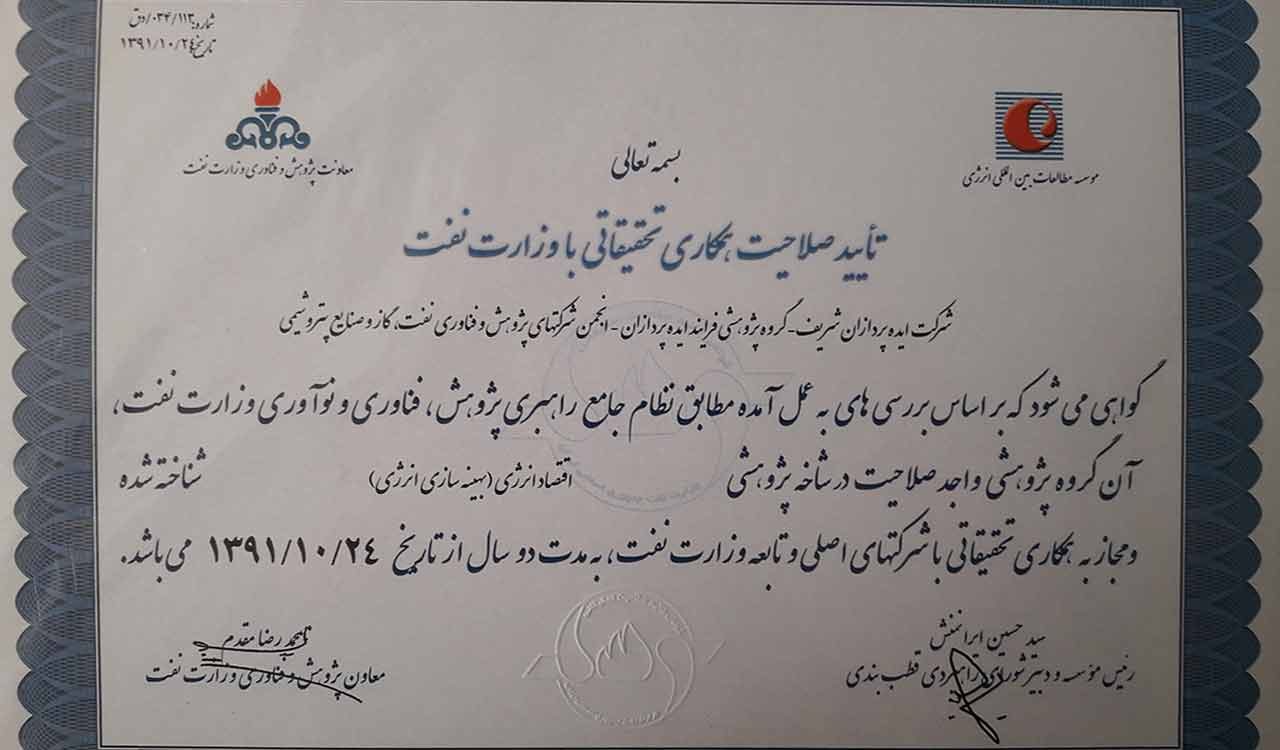 شماره: ۰۳۴/۱۱۳/دق
تاریخ: ۱۳۹۱/۱۰/۲۴
معاونت پژوهش و فناوری وزارت نفت
موسسه مطالعات بین المللی انرژی
بسمه تعالی
تأیید صلاحیت همکاری تحقیقاتی با وزارت نفت
شرکت ایده پردازان شریف - گروه پژوهشی فرایند ایده پردازان - انجمن شرکتهای پژوهش و فناوری نفت، گاز و صنایع پتروشیمی
گواهی می شود که بر اساس بررسی های به عمل آمده مطابق نظام جامع راهبری پژوهش، فناوری و نوآوری وزارت نفت،
آن گروه پژوهشی واجد صلاحیت در شاخه پژوهشی اقتصاد انرژی (بهینه سازی انرژی) شناخته شده
و مجاز به همکاری تحقیقاتی با شرکتهای اصلی و تابعه وزارت نفت، به مدت دو سال از تاریخ ۱۳۹۱/۱۰/۲۴ می باشد.
سید حسین ایرانمنش
رئیس مؤسسه و دبیر شورای راهبردی قطب بندی
محمد رضا مقدم
معاون پژوهش و فناوری وزارت نفت